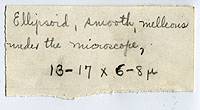 Ellipsoid, smooth, melleous
under the microscope,
13-17 x 6-8 µ